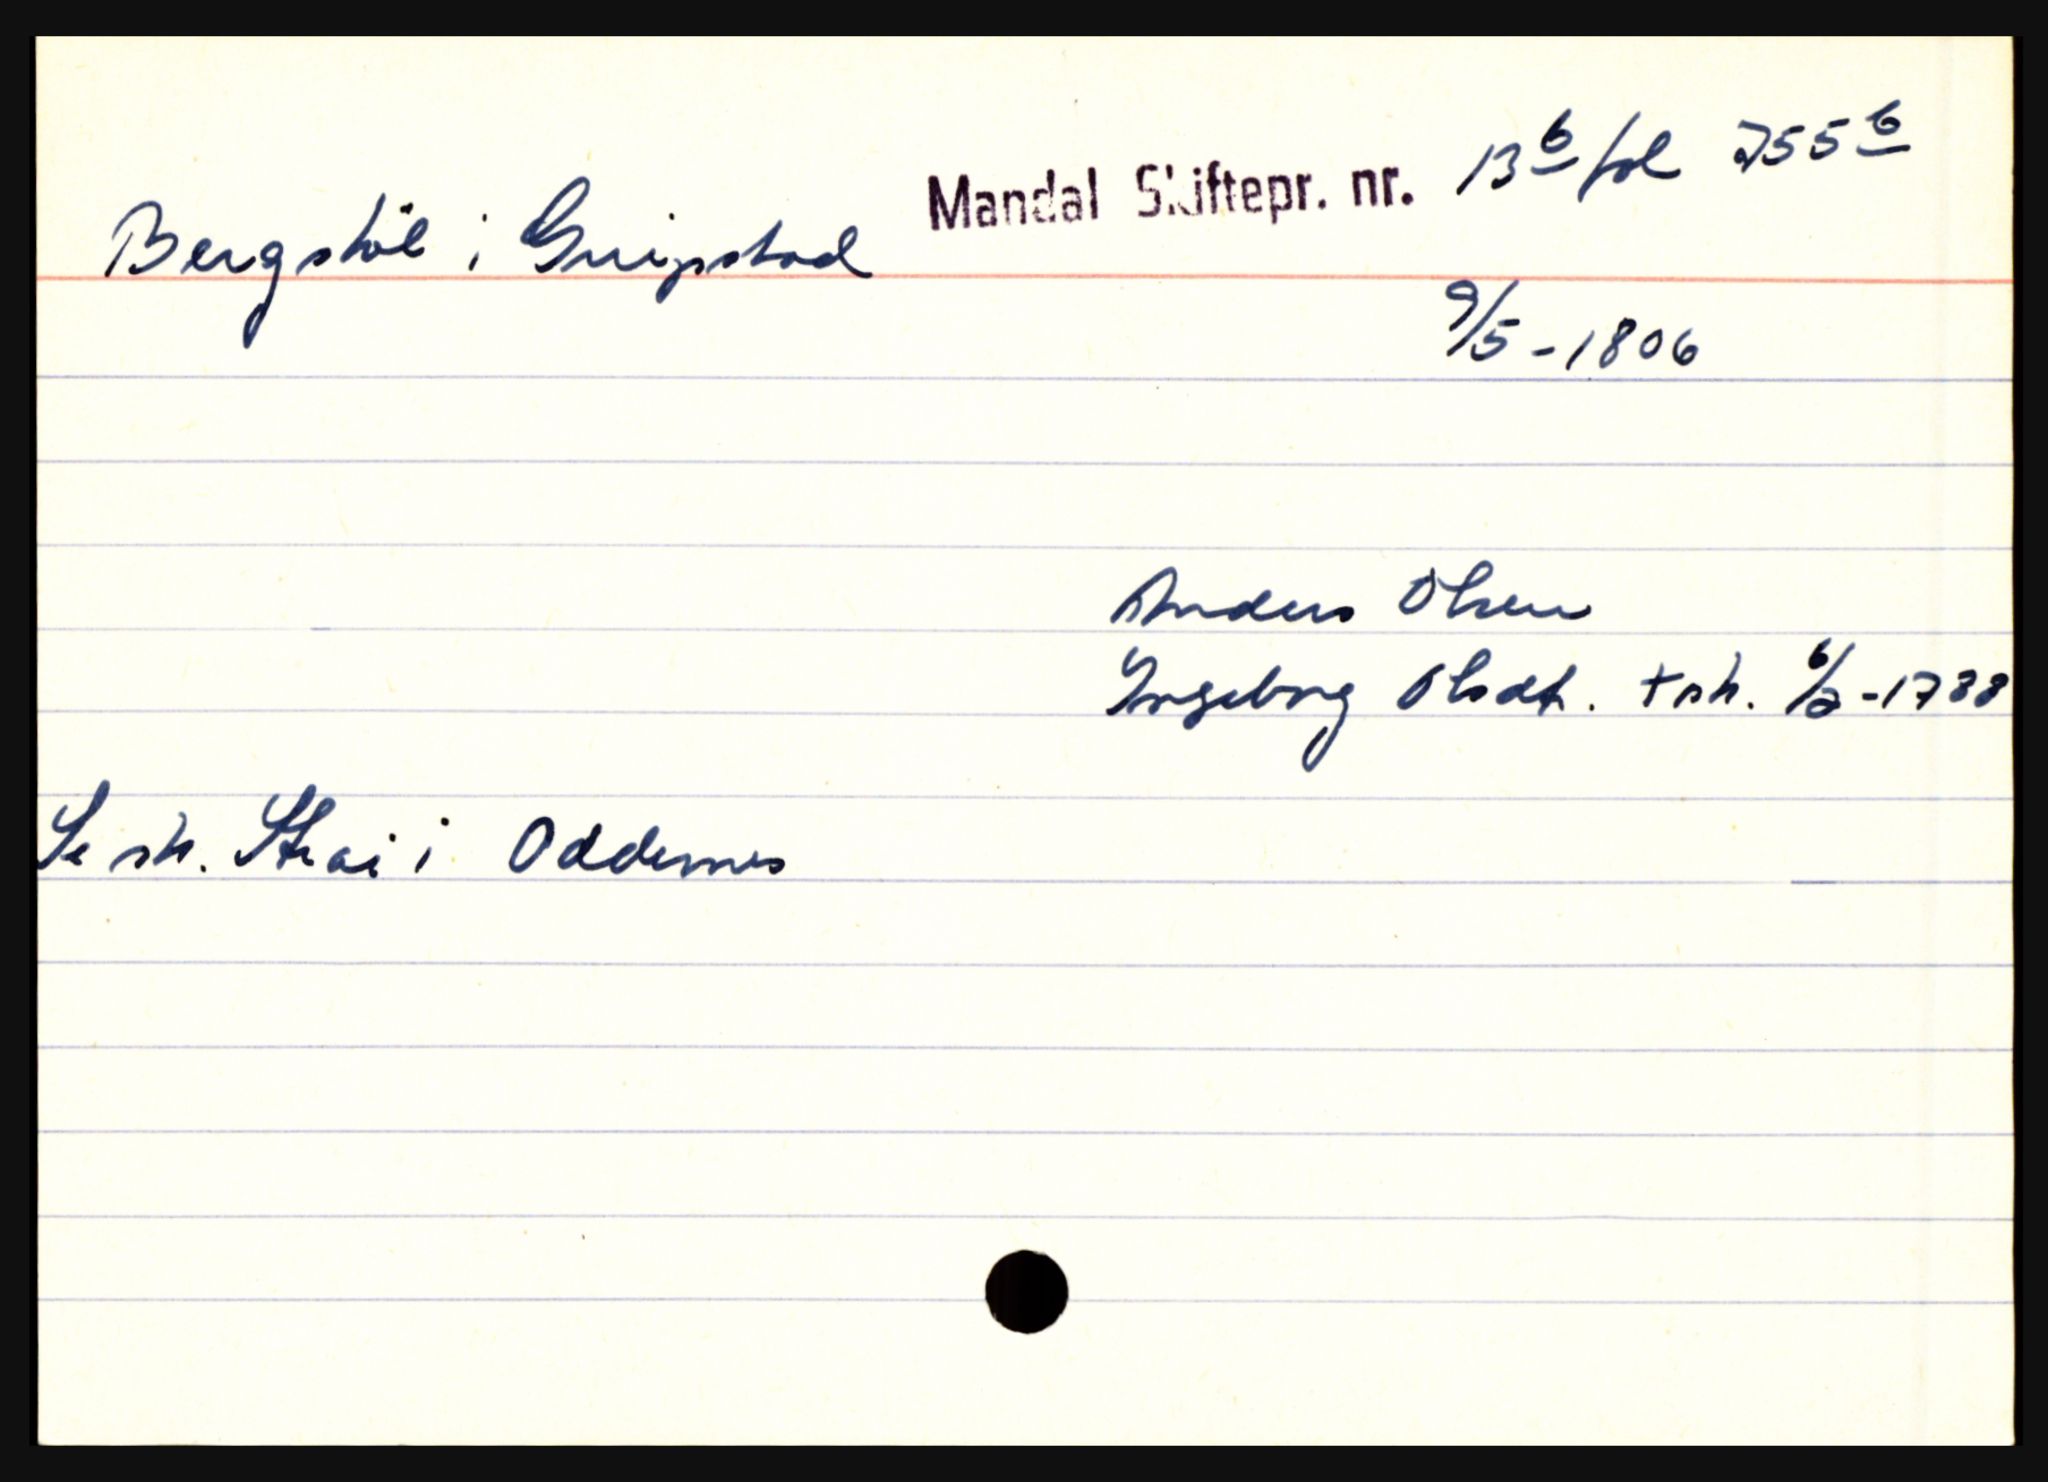 Mandal Skiftepr. nr. 13 b fol 755 b
Bergstöl i Greipstad
9/5 - 1806
Anders Olsen
Ingeborg Olsdt. + sk. 6/2 - 1788
Se sk. Strai i Oddernes